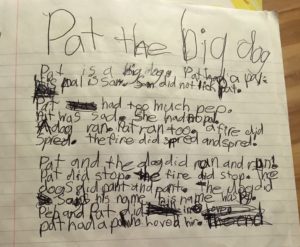 Pat the big dog
Pat is a big dog. Pat had a pal.
his pal is Sam. Sam did not lick pat.
Pat had too much pep.
Pat was sad. She had no pal.
A dog ran. Pat ran too. a fire did
spred. the fire did spred and spred!
Pat and the dog did run and run!
Pat did stop. the fire did stop. the
dog did pant and pant. the dog did
his name. his name was
Pep and Pat did in
pat had a pal loved him. the end